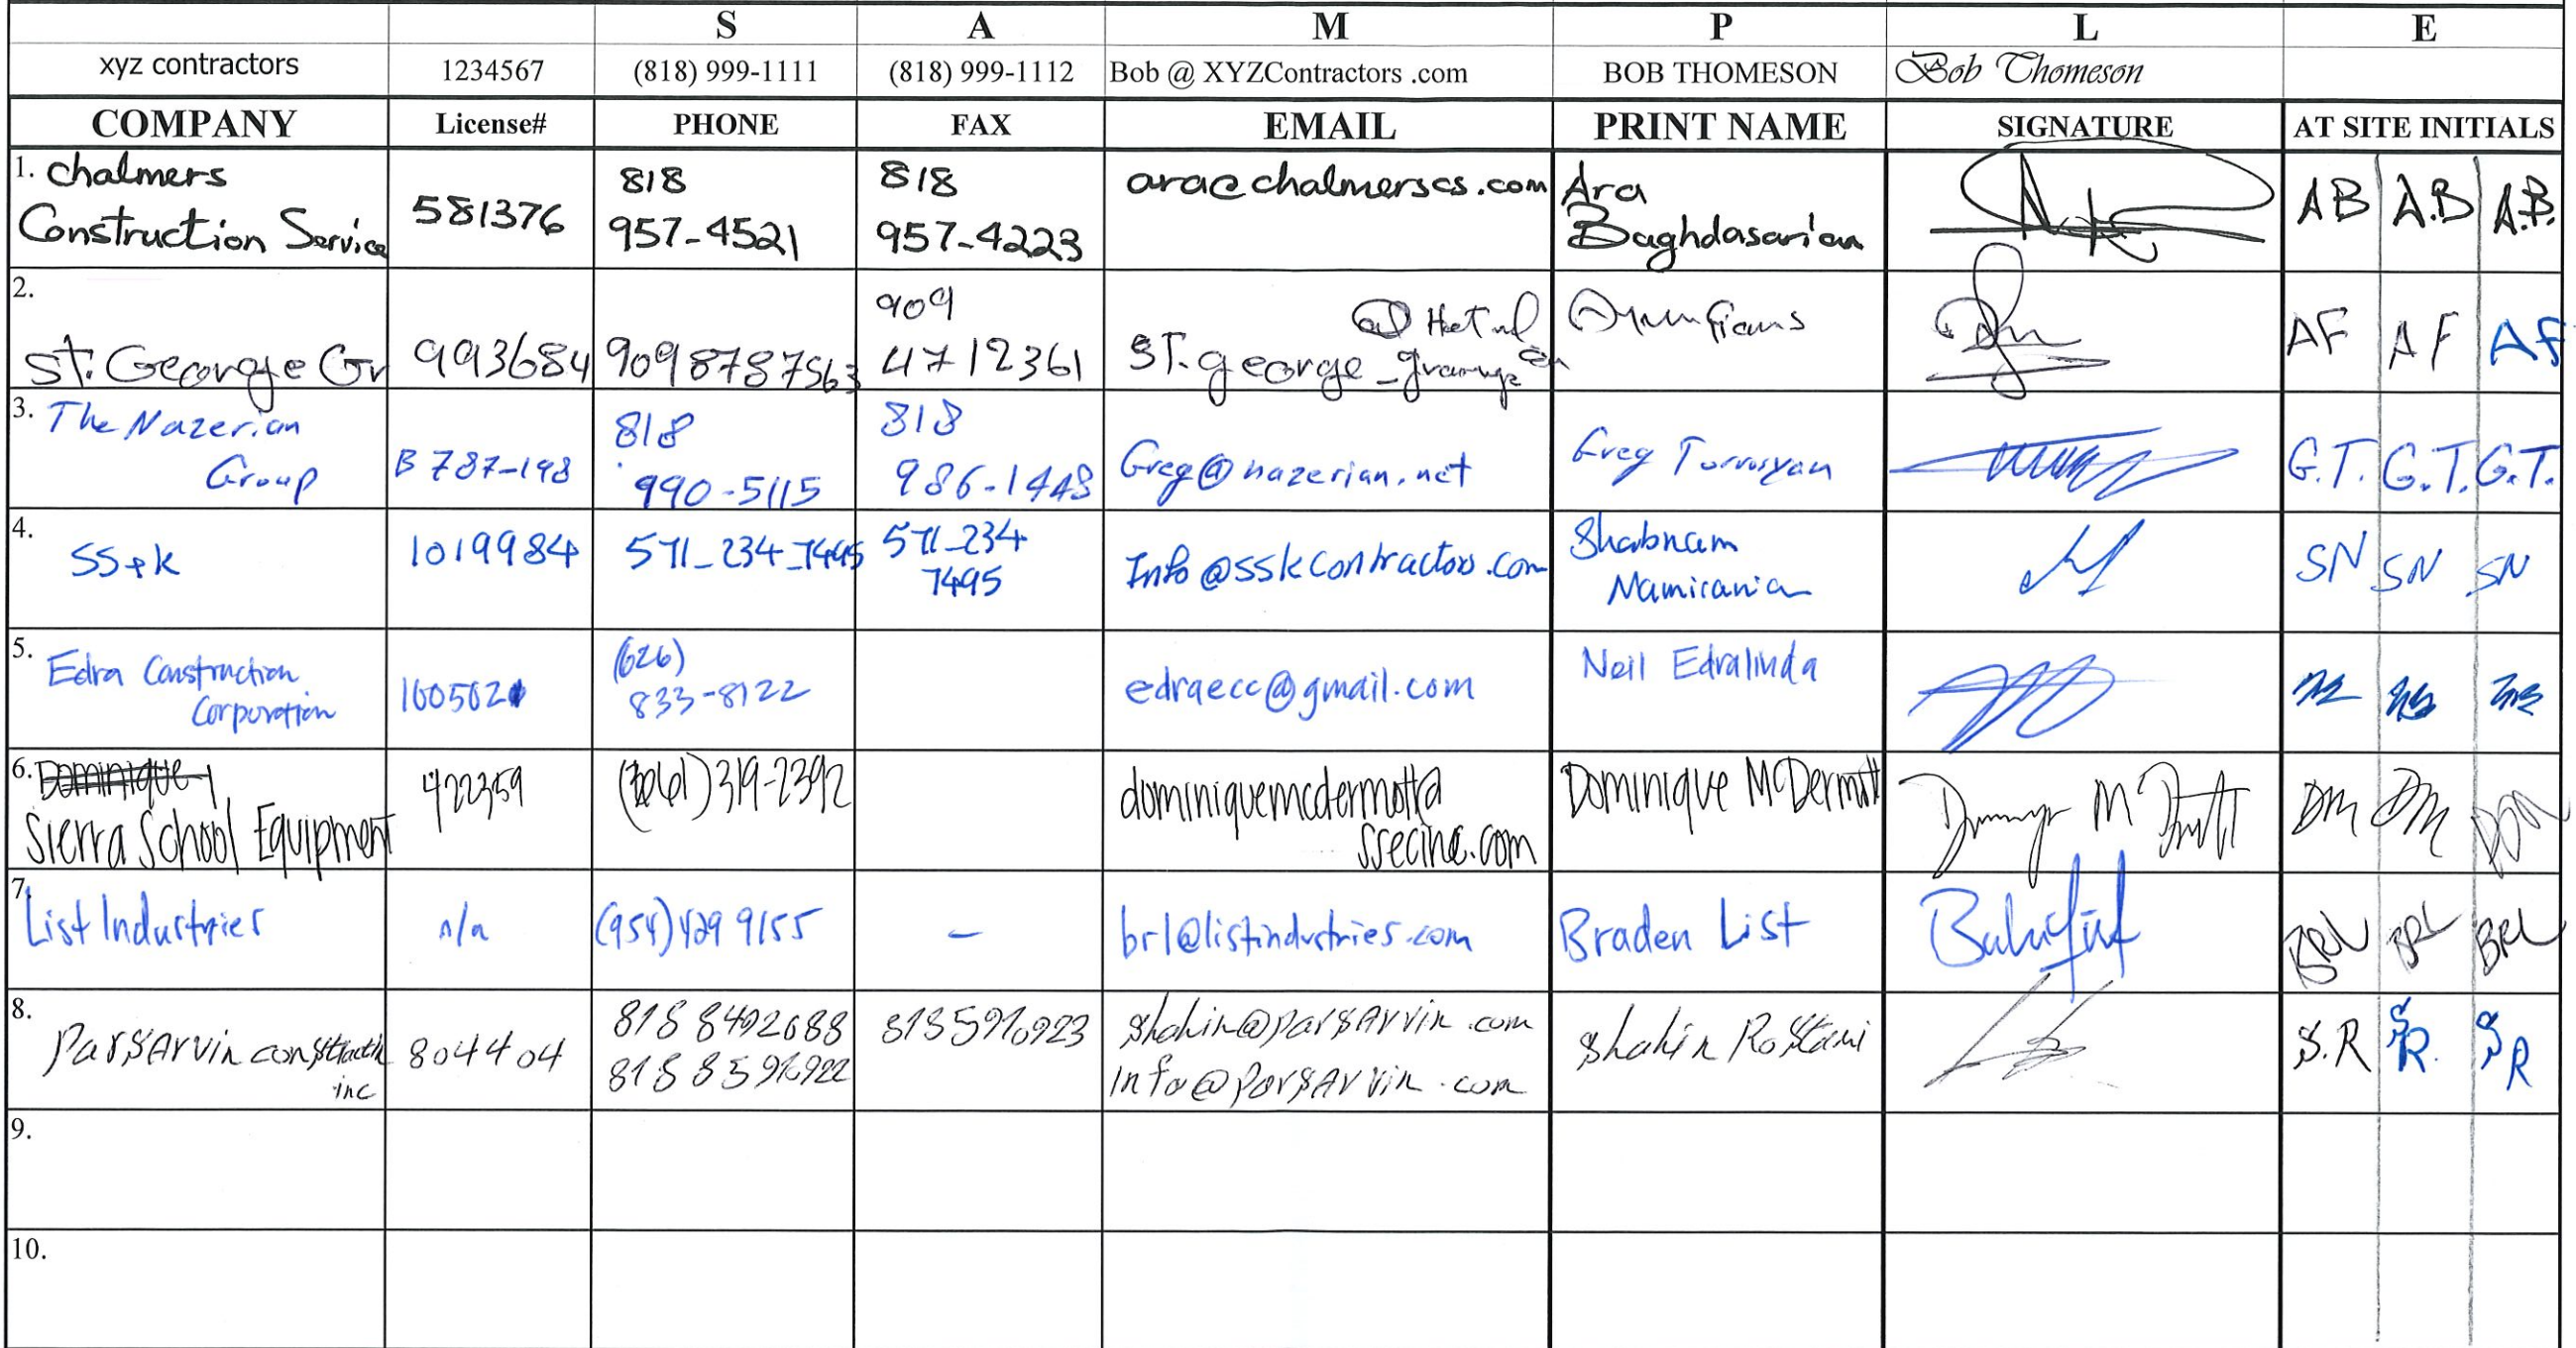 S A M P L E
xyz contractors 1234567 (818) 999-1111 (818) 999-1112 Bob @ XYZContractors .com BOB THOMESON Bob Thomeson
COMPANY License# PHONE FAX EMAIL PRINT NAME SIGNATURE AT SITE INITIALS
1. Chalmers
Construction Service
581376
818
957-4521
818
957-4223
ara@chalmerscs.com
Ara
Baghdasarian
AB A.B A.B.
2.
St. George Gr
993684
9098787563
909
4712361
ST.george_
AF AF AF
3. The Nazerian
Group
B 787-198
818
990-5115
818
986-1448
Greg@nazerian.net
Greg Torrosyan
G.T. G.T. G.T.
4.
SS+k
1019984
571-234-7495
571-234
7495
Info@sskcontractors.com
Shabnam
SN SN SN
5.
Edra Construction
Corporation
(626)
833-8122
edraecc@gmail.com
Neil Edralinda
6.
Sierra School Equipment
422359
(661)319-2392
dominiquemcdermott@
ssecinc.com
Dominique McDermott
DM DM DM
7.
List Industries
n/a
(954)429 9155
-
brl@listindustries.com
Braden List
BRL BRL BRL
8.
ParsArvin construction
inc
804404
818 8402688
8185910923
shahin@parsArvin.com
info@parsArvin.com
Shahin Rostami
S.R S.R. S R
9.
10.